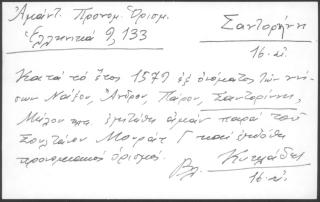 Ἀμάντ. Προνομ. Ὁρισμ.
Ἑλληνικά 9, 133
Σαντορήνη
16. αἰ.
Κατά τό ἔτος 1579 ἐξ ὀνόματος τῶν νή-
σων Νάξου, Ἄνδρου, Πάρου, Σαντορίνης,
Μήλου κτλ. ἐζητήθη ἀμάν παρά τοῦ
Σουλτάνου Μουράτ Γ καί ἐξεδόθη
προνομιακός ὁρισμός.
Βλ. Κυκλάδες
16. αἰ.